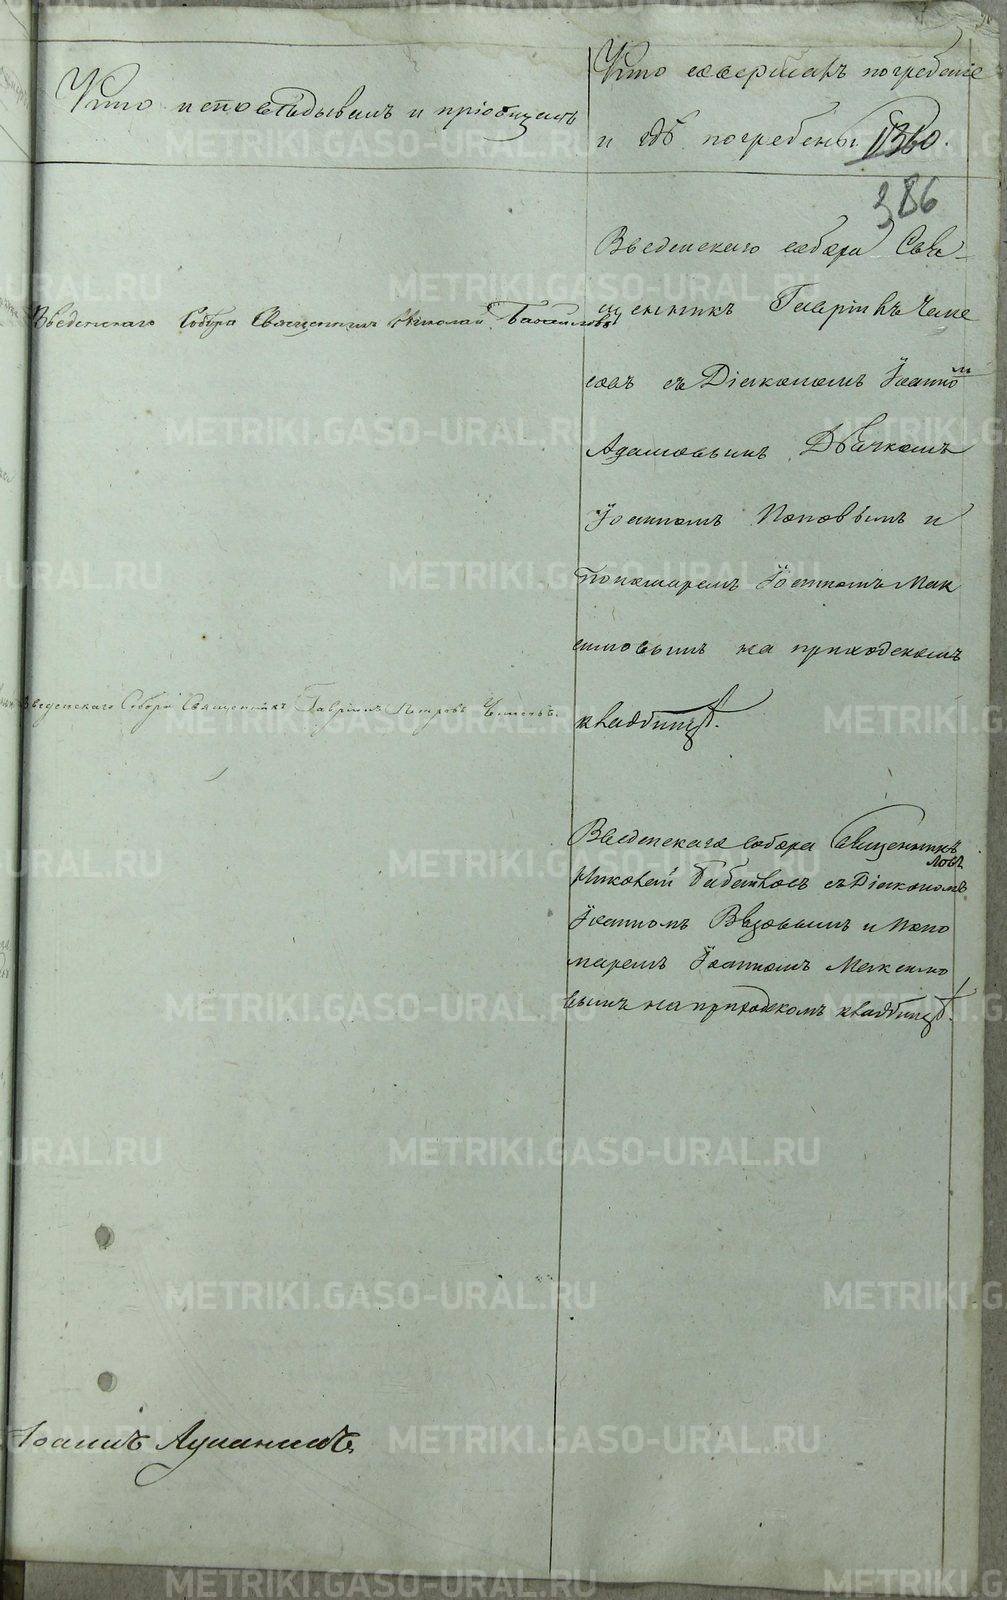 Кто исповѣдывалъ и пріобщалъ
Кто совершалъ погребеніе
и гдѣ погребены
1360.
386
Введенскаго Собора Священникъ Николай
Введенскаго собора Свя-
щенникъ Гавріилъ Чеме
совъ съ Діакономъ Іоанномъ
Адамовымъ Дьячкомъ
Іоанномъ Поповымъ и
Пономаремъ Іоанномъ Мак
симовымъ на приходскомъ
кладбищѣ.
Введенскаго Собора Священникъ Гавріилъ Петровъ
Введенскаго собора Священникъ
Николай съ Діакономъ
Іоанномъ и Поно
маремъ Іоанномъ Максимо
вымъ на приходскомъ кладбищѣ.
Іоаннъ
METRIKI.GASO-URAL.RU